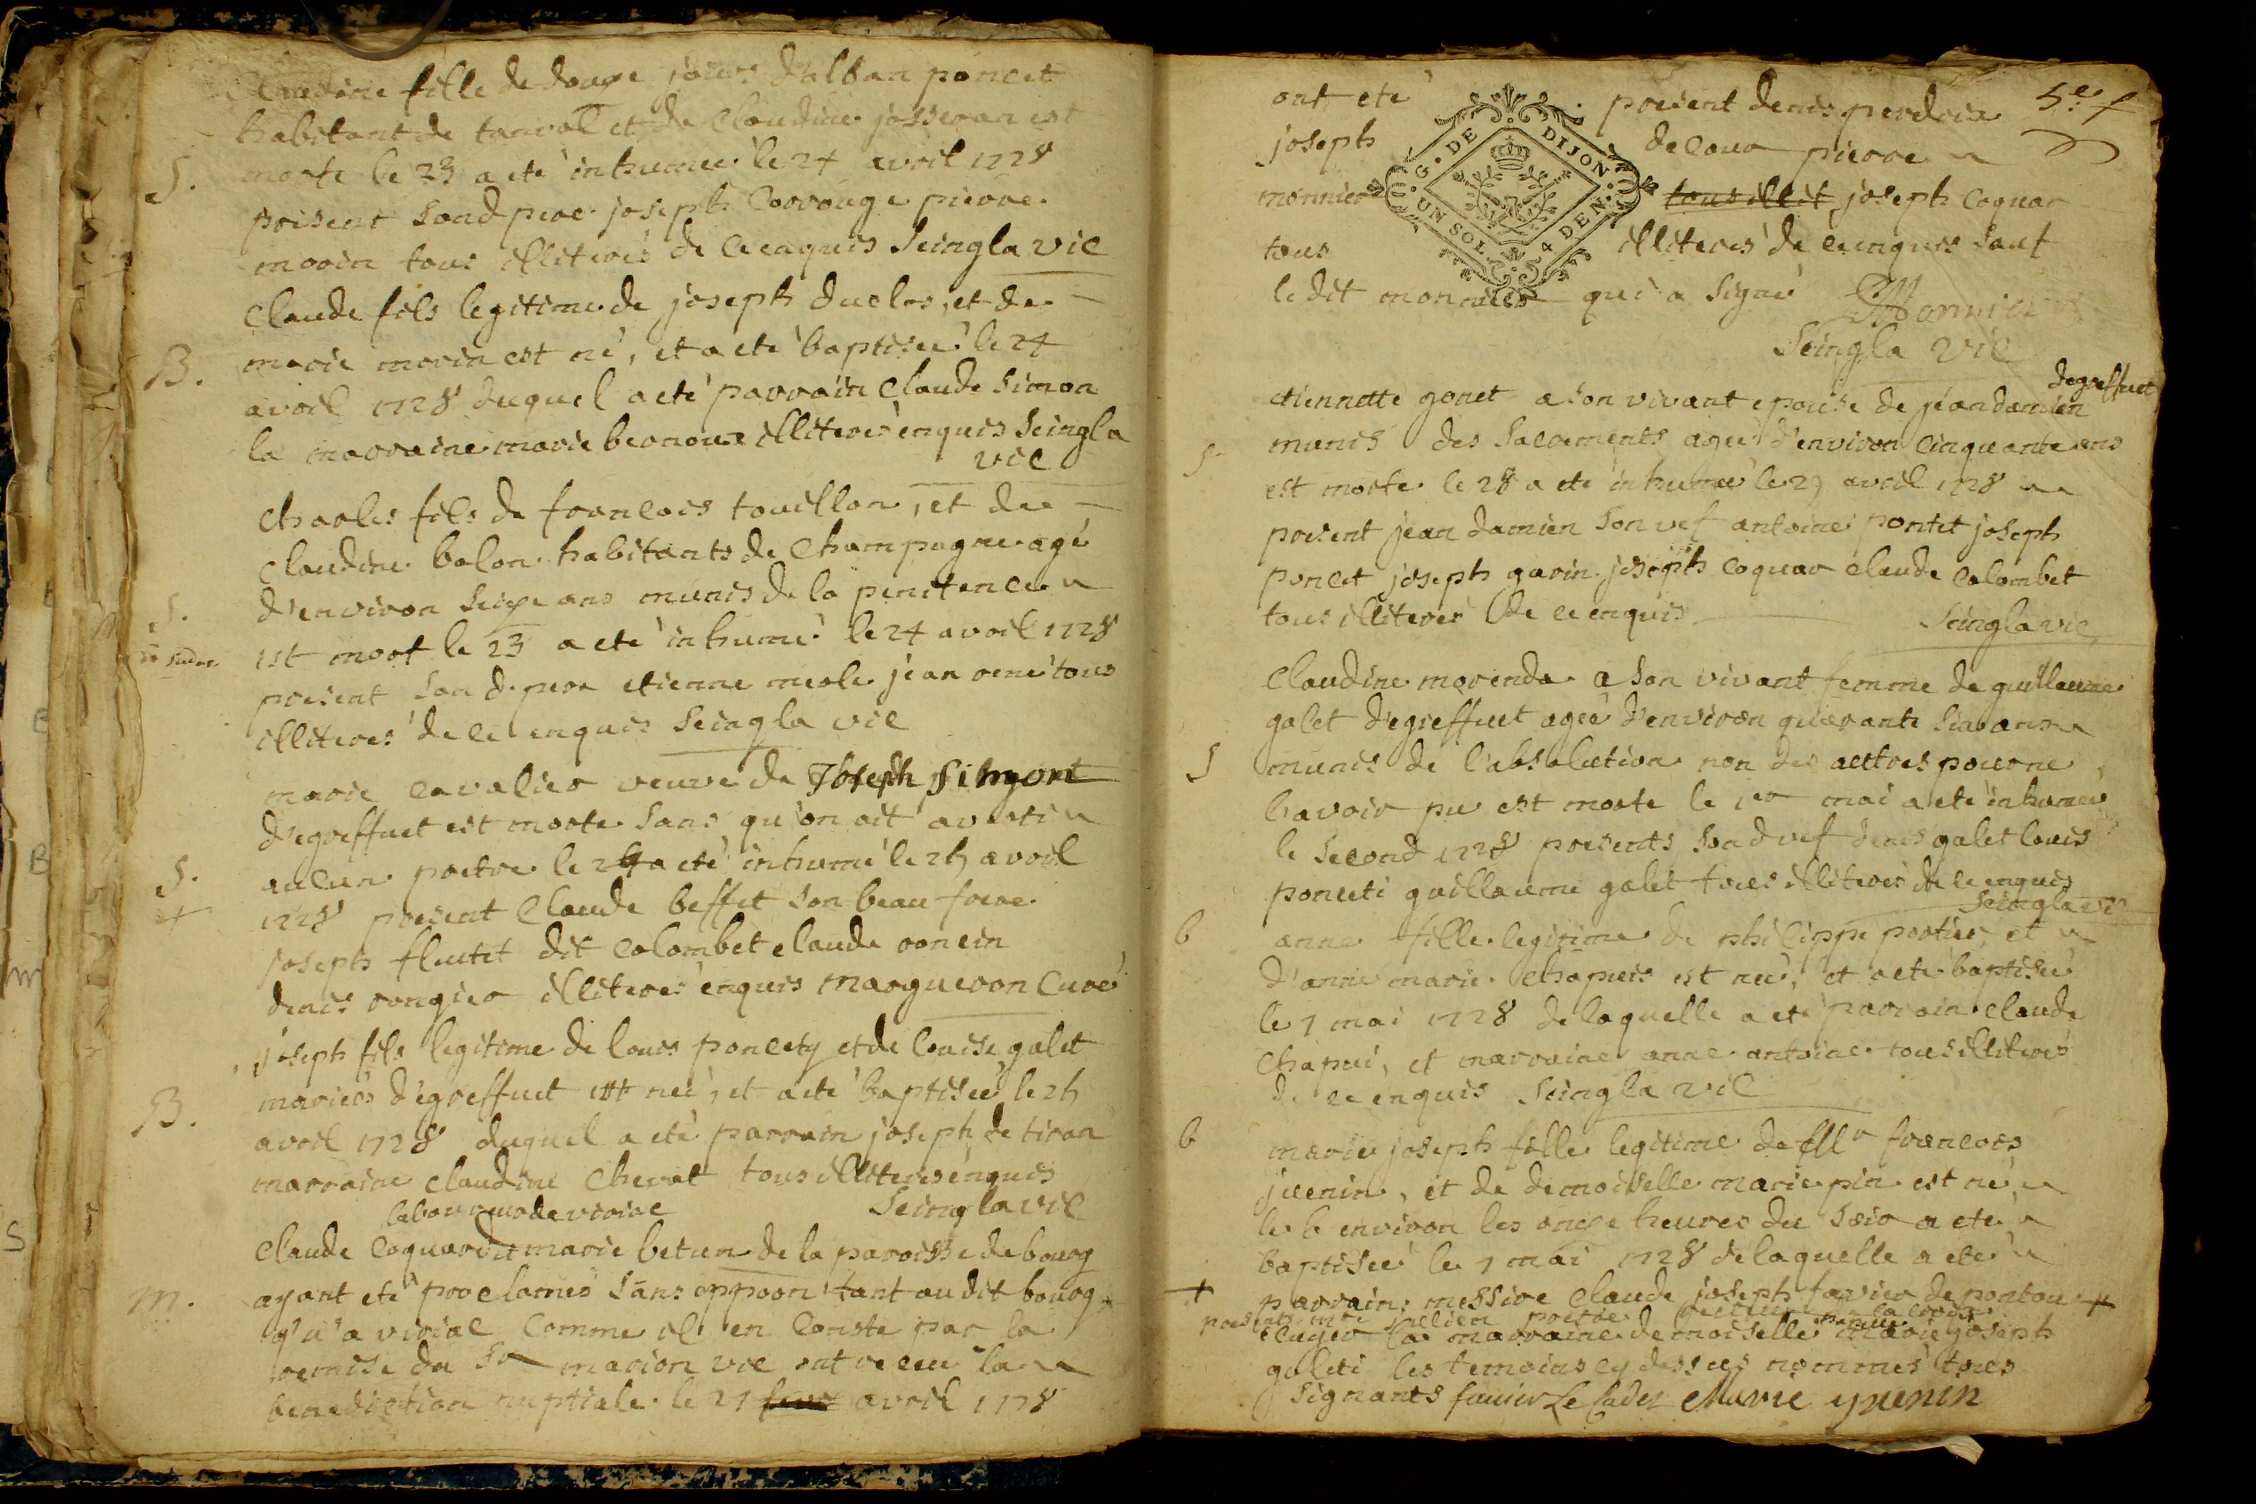 Claudine fille de douze jours d'alban poncet
habitant de tanvol et de Claudine josseran est
S. morte le 23 a eté inhumée le 24 avril 1728
présent sond pere joseph Corrouge pierre
morin tous illiterés de ce enquis Seingla vic
Claude fils legitime de joseph duclos, et de
B. marie morin est né, et a eté baptisée le 24
avril 1728 duquel a eté parrain Claude Simon
la marraine marie bernoux illiterés enquis Seingla
vic
Charles fils de francois touillon, et de
Claudine bolon habitants de Champagne agé
S. d'environ seize ans munis de la penitence
est mort le 23 a eté inhumé le 24 avril 1728
présent son d. pere etienne merle jean rené tous
illiterés de ce enquis Seingla vic
marie cavalier veuve de Joseph Simyont
d'egreffuet est morte sans qu'on ait averti
S. aucun pretre le 24 a eté inhumé le 25 avril
+ 1728 présent Claude beffet son beau frere
joseph flutet dit Colombet claude roncin
denis rongier illiterés enquis Margueron Curé
joseph fils legitime de louis poncety et de louise galet
mariés d'egreffuet est neé, et a eté baptiseé le 25
B. avril 1728 duquel a eté parrain joseph de tiran
marraine Claudine Chevat tous illiterés enquis
laboureur de viriac Seingla vic
Claude Coquard et marie betun de la paroisse de bourg
ayant eté proclamés sans oppoon tant au dit bourg
m. qu'a viriac Comme il en Conste par la
remise du Sr marion vic ont receu la
benediction nuptiale le 27 avril 1728
ont eté présent denis perdrix 5e f
joseph decour pierre
monnier tous illit joseph Coquar
tous illiterés de ce enquis sauf
le dit monnier qui a signé Monnier
Seingla vic
G. DE DIJON.
UN SOL. 4 DEN.
degreffuet
etiennette gonet a son vivant epouse de jean damien
S munis des Sacrements ageé d'environ Cinquante ans
est morte le 28 a eté inhumé le 29 avril 1728
présent jean damien son vef antoine pontet joseph
poncet joseph garin joseph Coquar Claude Colombet
tous illiterés de ce enquis Seingla vic
Claudine morinda a son vivant femme de guillaume
galet d'egreffuet ageé d'environ quarante six ans
S munis de l'absolution non des autres pour ne
l'avoir pu est morte le 1er mai a eté inhumeé
le second 1728 présents sond vef denis galet louis
ponceti guillaume galet tous illiterés de ce enquis
Seingla vic
b anne fille legitime de philippe portier, et
d'anne marie Chapuis est neé, et a eté baptiseé
le 7 mai 1728 de laquelle a eté parrain Claude
Chapui, et marraine anne antoine tous illiterés
de ce enquis Seingla vic
b marie joseph fille legitime de francois
juenin, et de demoiselle marie pin est né
le 6 environ les onze heures du soir a eté
baptiseé le 7 mai 1728 de laquelle a eté
+ parrain messire Claude joseph favier de pontou +
présents mre julien pretre
la marraine demoiselle marie joseph
galeti les temoins cy dessus nommés tous
signants favier Le Cadet Marie yuenin